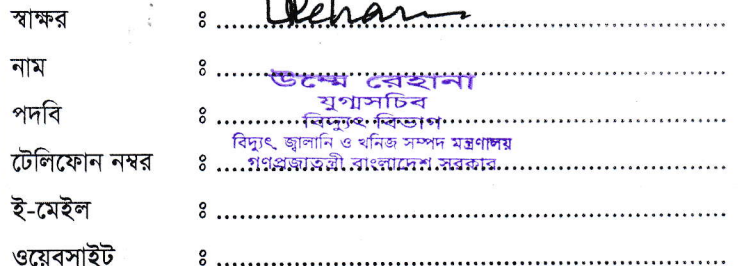 স্বাক্ষর ঃ Rehana
নাম ঃ
উম্মে রেহানা
যুগ্মসচিব
পদবি ঃ
বিদ্যুৎ বিভাগ
বিদ্যুৎ, জ্বালানি ও খনিজ সম্পদ মন্ত্রণালয়
টেলিফোন নম্বর ঃ
গণপ্রজাতন্ত্রী বাংলাদেশ সরকার
ই-মেইল ঃ
ওয়েবসাইট ঃ